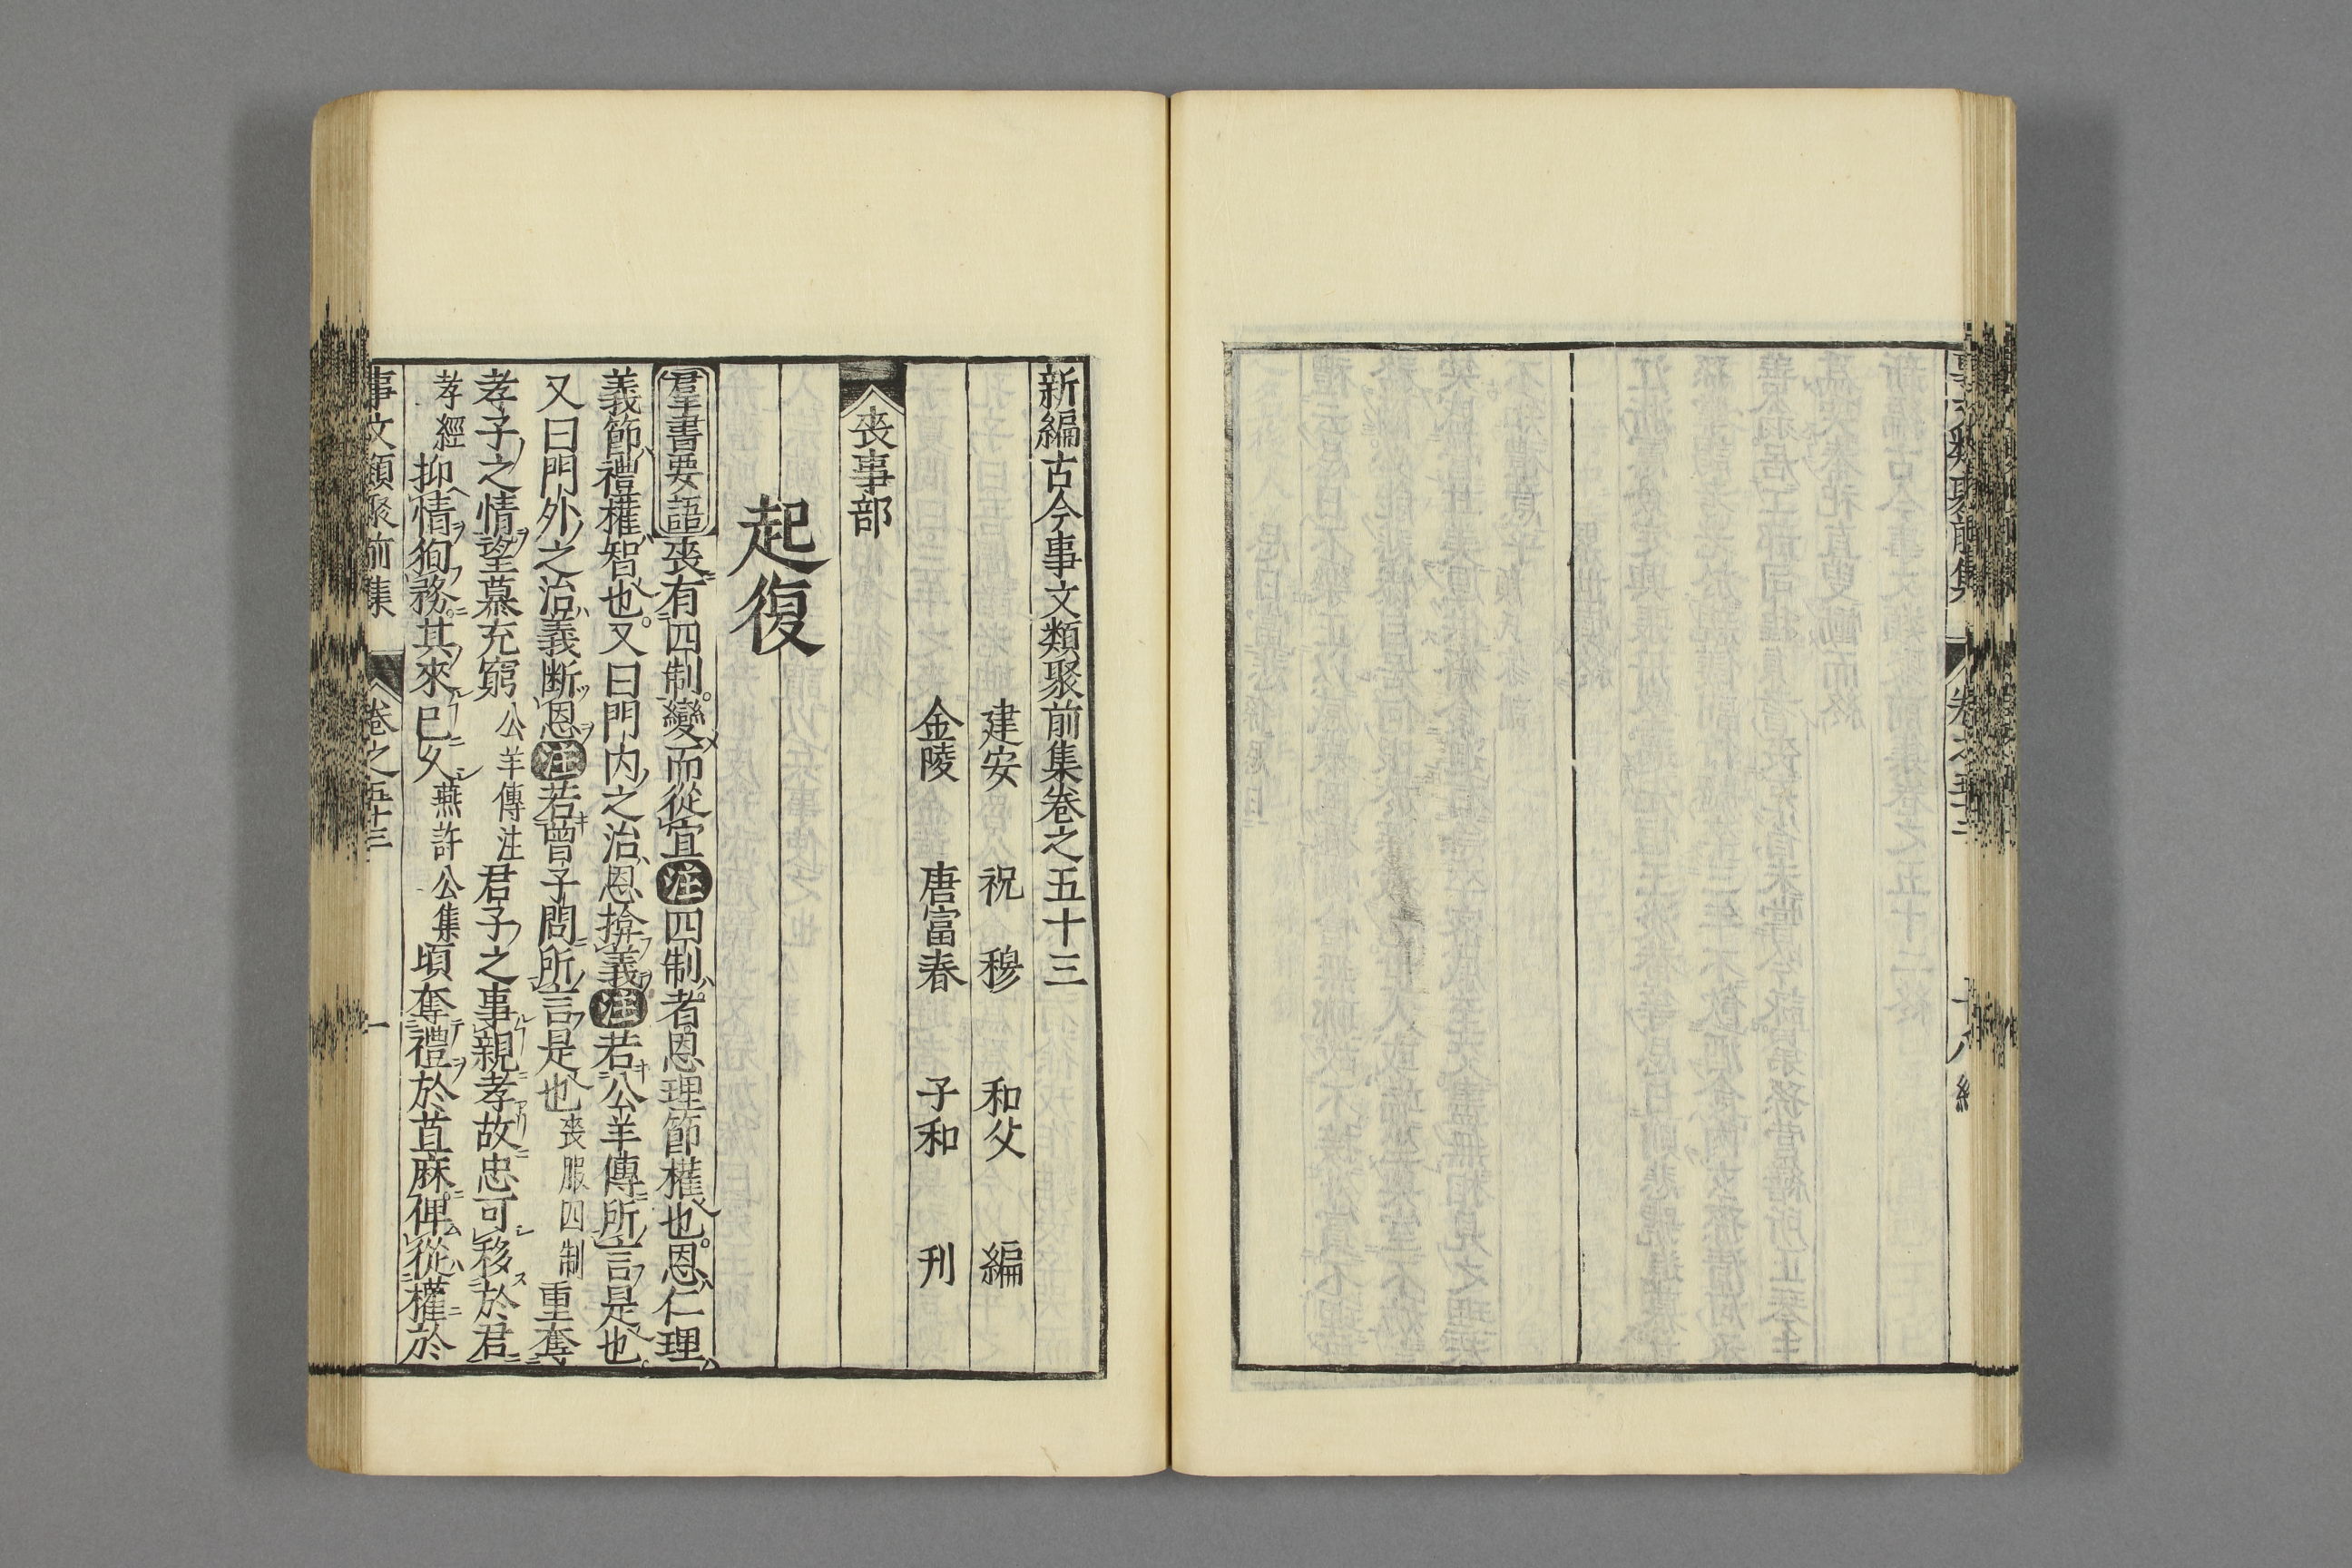 新編古今事文類聚前集卷之五十三
建安 祝 穆 和父 編
金陵 唐富春 子和 刊
喪事部
起復
羣書要語喪有四制變而從宜注四制者恩理節權也恩仁理
義節禮權智也又曰門内之治恩揜義注若公羊傳所言是也
又曰門外之治義断恩注若曾子問所言是也喪服四制重奪
孝子之情望慕充窮公羊傳注君子之事親孝故忠可移於君
孝經抑情狥務其來已久燕許公集頃奪禮於苴麻俾從權於
事文類聚前集 卷之五十三 一